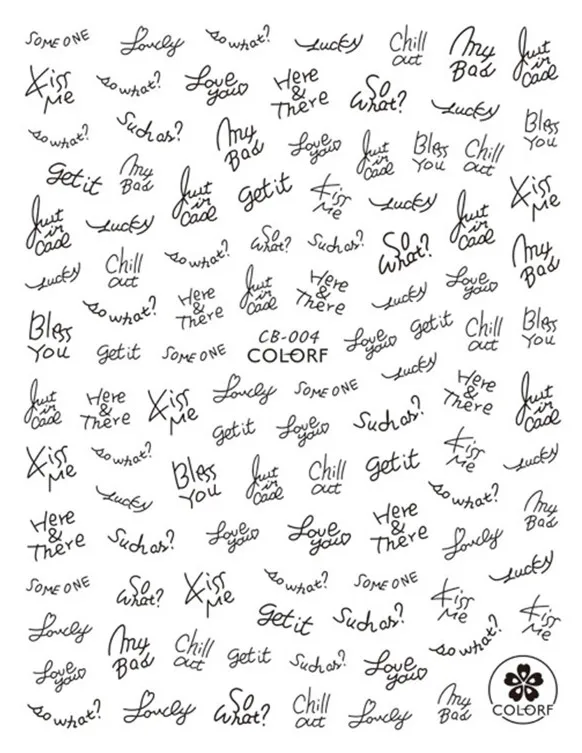 SOME ONE
Lovely
so what?
Lucky
Chill
out
My
Bad
Just
in
Case
Kiss
Me
so what?
Love
you
Here
&
There
So
what?
Lucky
Bless
You
so what?
Such as?
My
Bad
Love
you
Just
in
Case
Bless
You
Chill
out
Get it
My
Bad
Just
in
Case
Get it
Kiss
Me
Lucky
Just
in
Case
Kiss
Me
Just
in
Case
Lucky
so what?
So
what?
Such as?
So
what?
My
Bad
Lucky
Chill
out
so what?
Here
&
There
Just
in
Case
Here
&
There
Lucky
Love
you
Bless
You
Get it
SOME ONE
CB-004
COLORF
Love
you
Get it
Chill
out
Bless
You
Just
in
Case
Here
&
There
Kiss
Me
Lovely
SOME ONE
Lucky
Here
&
There
Just
in
Case
Get it
Love
you
Such as?
Kiss
Me
so what?
Bless
You
Just
in
Case
Chill
out
Get it
Kiss
Me
Lucky
Lucky
so what?
My
Bad
Here
&
There
Such as?
Love
you
Love
you
Here
&
There
Lovely
SOME ONE
So
what?
Kiss
Me
so what?
SOME ONE
Kiss
Me
Lucky
Lovely
Get it
Such as?
Kiss
Me
My
Bad
Chill
out
Get it
Such as?
so what?
Love
you
Love
you
so what?
Lovely
So
what?
Chill
out
Lovely
My
Bad
COLORF